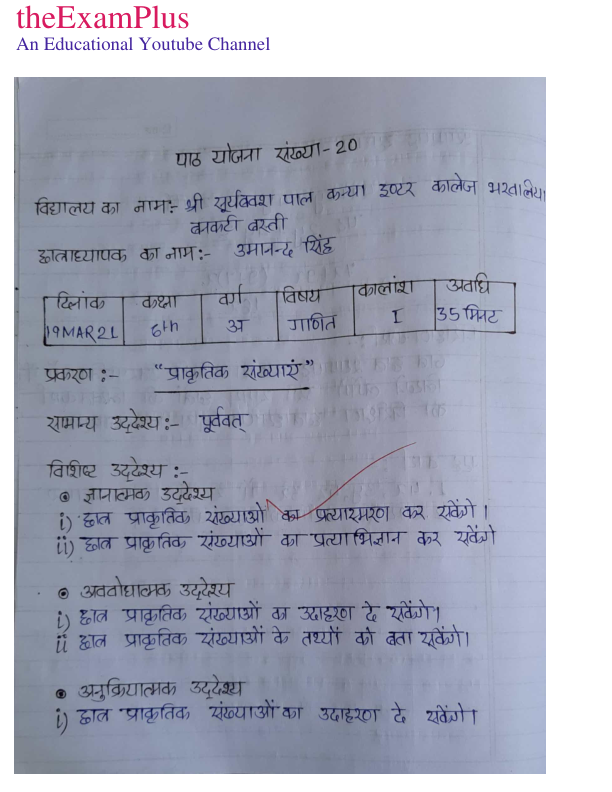 theExamPlus
An Educational Youtube Channel
पाठ योजना संख्या - 20
विद्यालय का नाम:- श्री सूर्यबक्श पाल कन्या इण्टर कालेज भरतालिया
बनकटी बस्ती
छात्राध्यापक का नाम:- उमानन्द सिंह
दिनांक कक्षा वर्ग विषय कालांश अवधि
19MAR21 6th अ गणित I 35 मिनट
प्रकरण :- "प्राकृतिक संख्याएं"
सामान्य उद्देश्य:- पूर्ववत्
विशिष्ट उद्देश्य :-
ज्ञानात्मक उद्देश्य
i) छात्र प्राकृतिक संख्याओं का प्रत्यास्मरण कर सकेंगे।
ii) छात्र प्राकृतिक संख्याओं का प्रत्याभिज्ञान कर सकेंगे
अवबोधात्मक उद्देश्य
i) छात्र प्राकृतिक संख्याओं का उदाहरण दे सकेंगे।
ii छात्र प्राकृतिक संख्याओं के तथ्यों को बता सकेंगे।
अनुक्रियात्मक उद्देश्य
i) छात्र प्राकृतिक संख्याओं का उदाहरण दे सकेंगे।